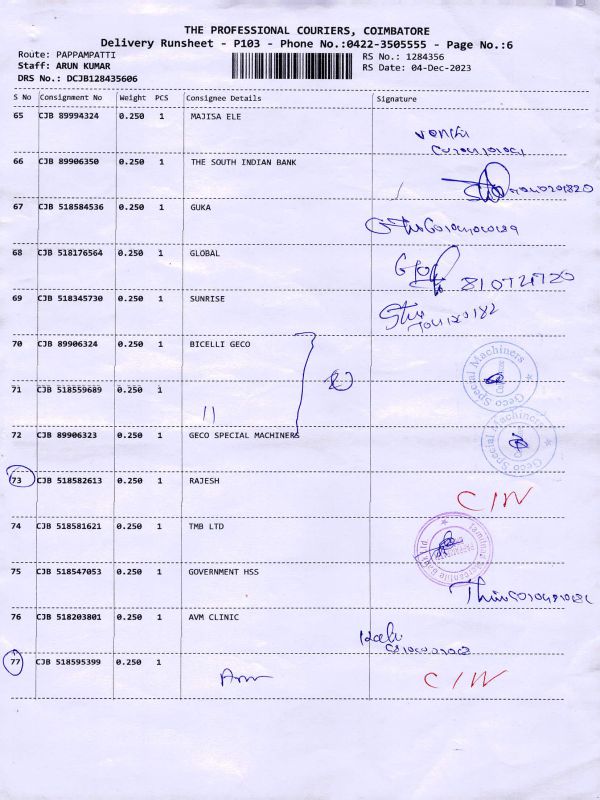 THE PROFESSIONAL COURIERS, COIMBATORE
Delivery Runsheet - P103 - Phone No.:0422-3505555 - Page No.:6
Route: PAPPAMPATTI
Staff: ARUN KUMAR
DRS No.: DCJB128435606
RS No.: 1284356
RS Date: 04-Dec-2023
S No Consignment No Weight PCS Consignee Details Signature
65 CJB 89994324 0.250 1 MAJISA ELE
66 CJB 89906350 0.250 1 THE SOUTH INDIAN BANK
67 CJB 518584536 0.250 1 GUKA
68 CJB 518176564 0.250 1 GLOBAL
69 CJB 518345730 0.250 1 SUNRISE
70 CJB 89906324 0.250 1 BICELLI GECO
Geco Special Machiners
71 CJB 518559689 0.250 1 11
72 CJB 89906323 0.250 1 GECO SPECIAL MACHINERS
Geco Special Machiners
73 CJB 518582613 0.250 1 RAJESH C/W
74 CJB 518581621 0.250 1 TMB LTD
Tamilnad Mercantile Bank Ltd
75 CJB 518547053 0.250 1 GOVERNMENT HSS
76 CJB 518203801 0.250 1 AVM CLINIC
77 CJB 518595399 0.250 1 C/W